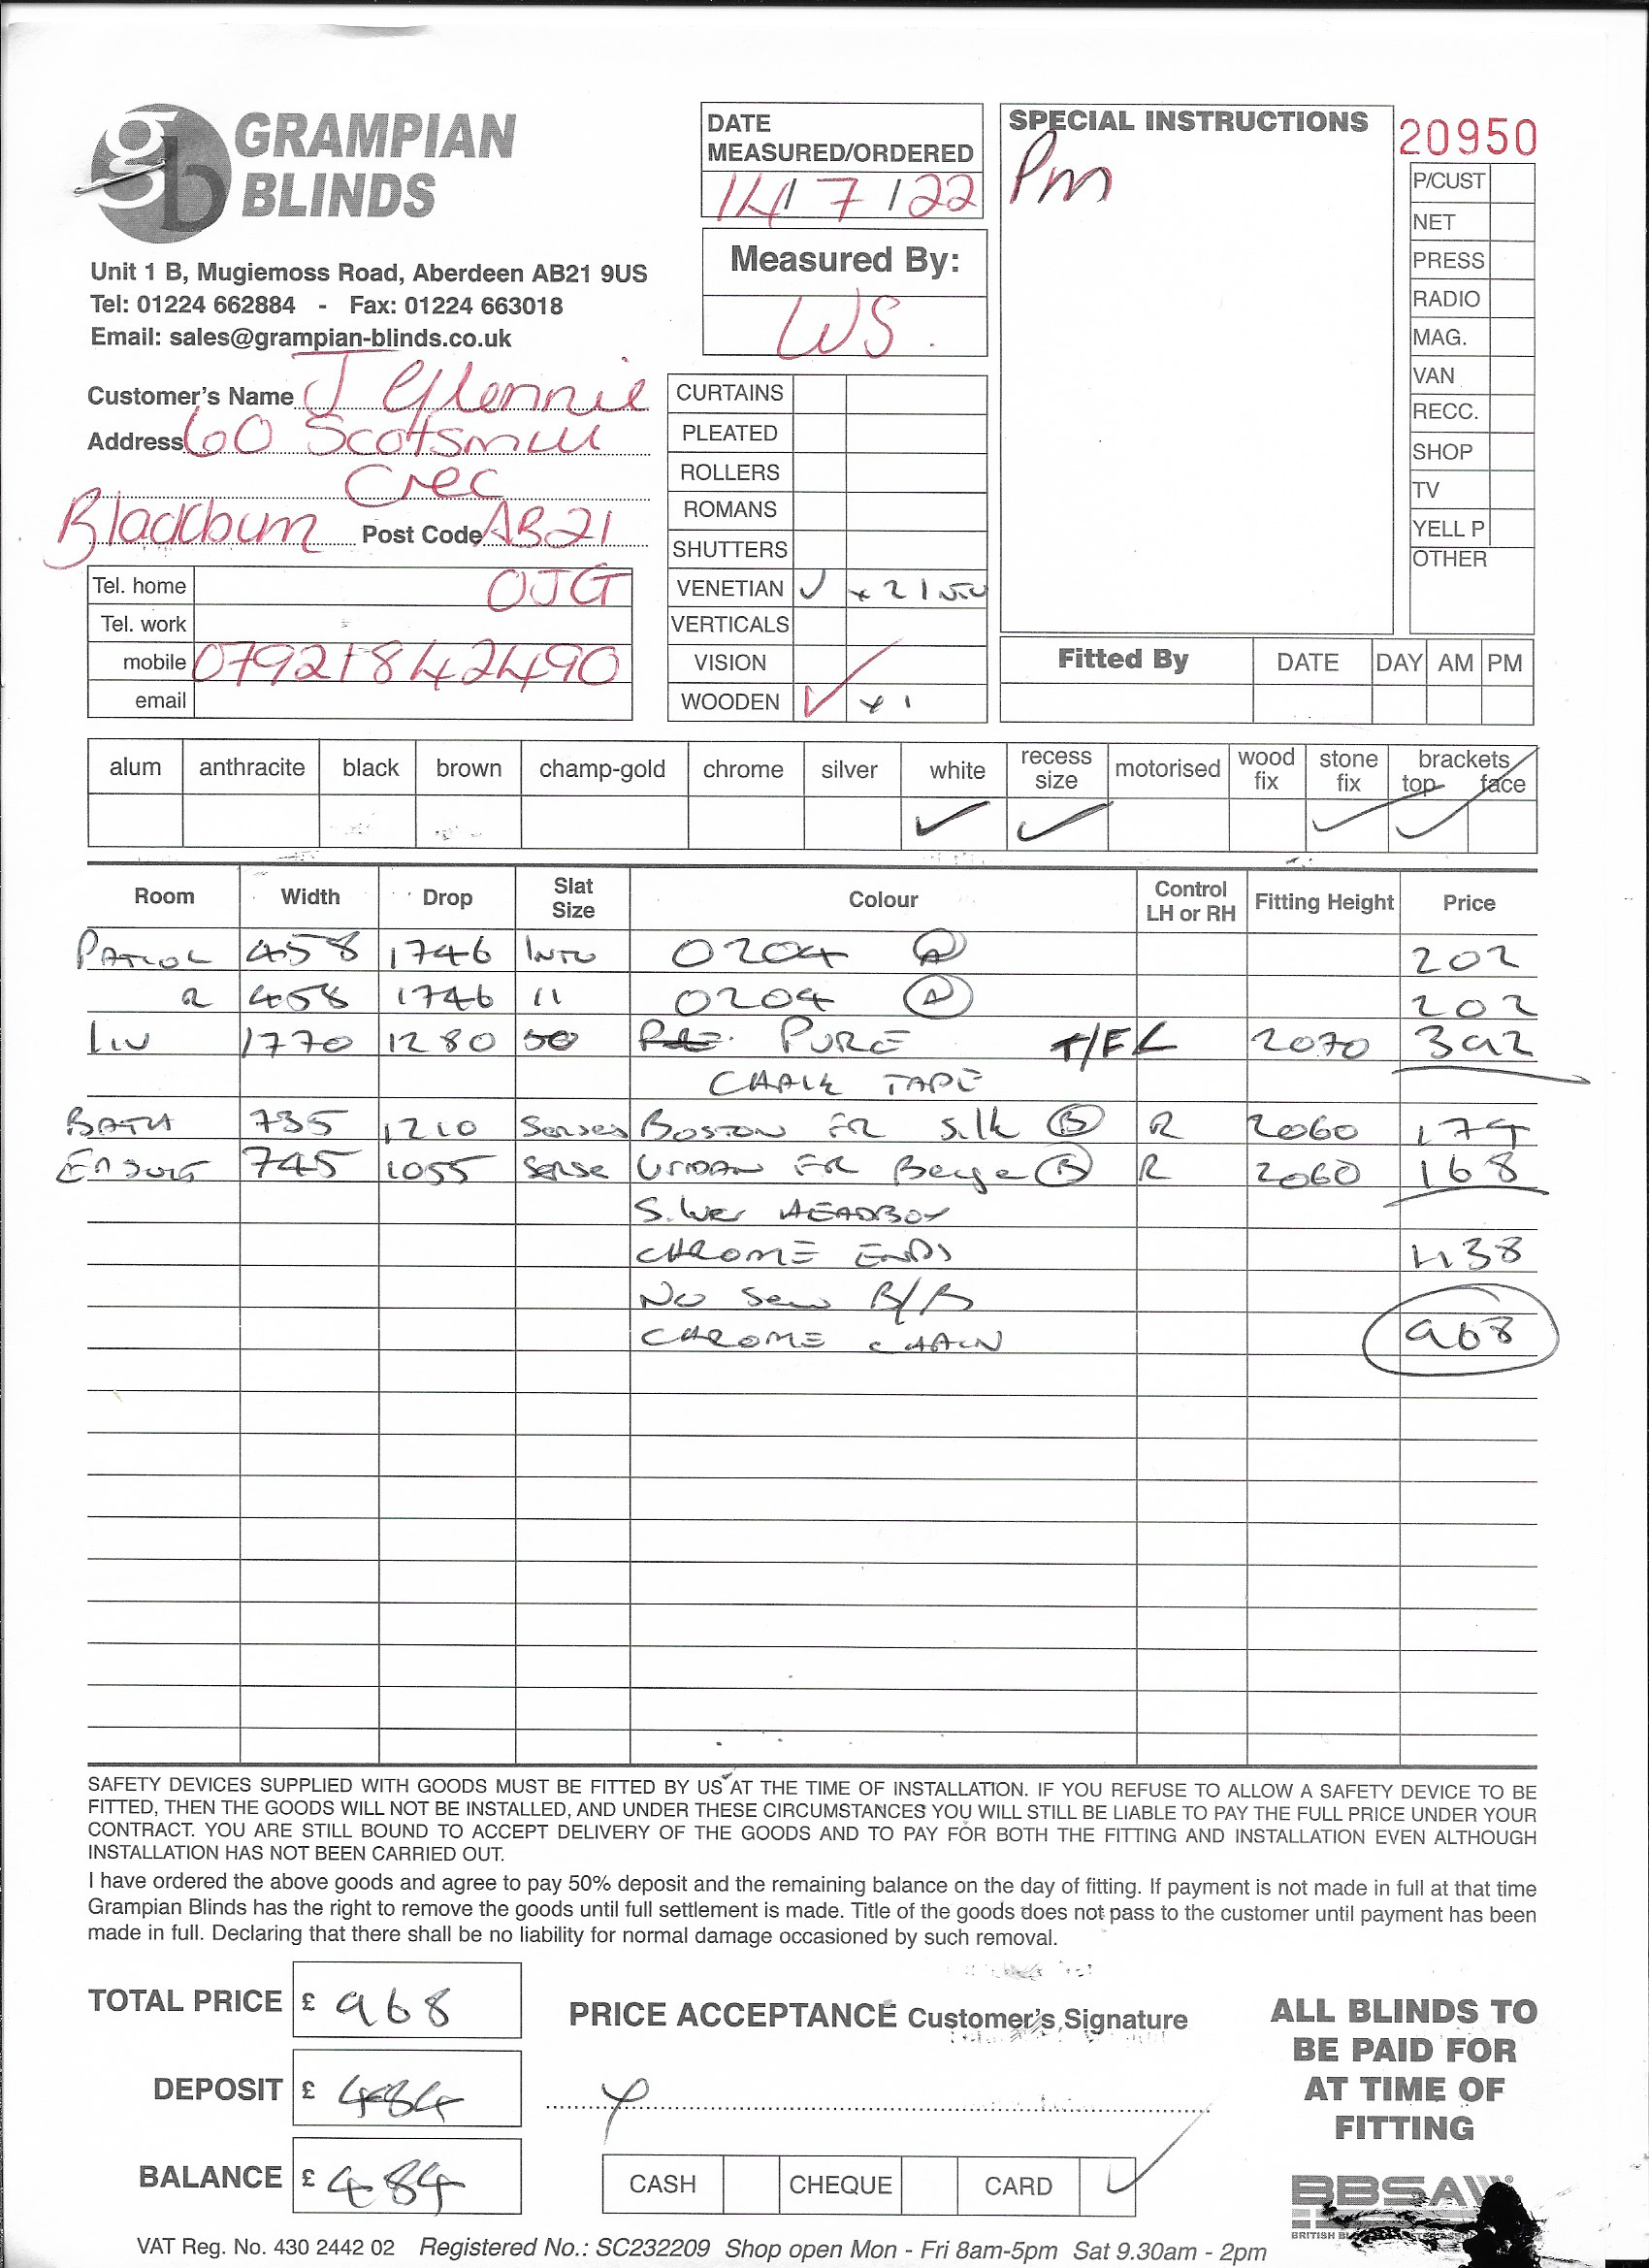 GRAMPIAN
BLINDS
Unit 1 B, Mugiemoss Road, Aberdeen AB21 9US
Tel: 01224 662884 - Fax: 01224 663018
Email: sales@grampian-blinds.co.uk
DATE
MEASURED/ORDERED
14/7/22
Measured By:
WS.
SPECIAL INSTRUCTIONS
Pm
20950
P/CUST
NET
PRESS
RADIO
MAG.
VAN
RECC.
SHOP
TV
YELL P
OTHER
Customer's Name J Glennie
Address 60 Scotsmill
Crec
Blackburn Post Code AB21
Tel. home 0JG
Tel. work
mobile 07921842490
email
CURTAINS
PLEATED
ROLLERS
ROMANS
SHUTTERS
VENETIAN ✓ x 2
VERTICALS
VISION
WOODEN ✓ x 1
Fitted By DATE DAY AM PM
alum anthracite black brown champ-gold chrome silver white recess size motorised wood fix stone fix brackets top face
✓ ✓ ✓ ✓
Room Width Drop Slat Size Colour Control LH or RH Fitting Height Price
458 1746 INTU 0204 A 202
R 458 1746 11 0204 A 202
LIV 1770 1280 50 PURE T/F L 2070 392
CHALK TAPE
BATH 735 1210 Senses BOSTON FR Silk B R 2060 174
ENSUITE 745 1055 Sense URBAN FR Beige B R 2060 168
Silver HEADBOX
CHROME ENDS 1138
No Sew B/B
CHROME CHAIN 968
SAFETY DEVICES SUPPLIED WITH GOODS MUST BE FITTED BY US AT THE TIME OF INSTALLATION. IF YOU REFUSE TO ALLOW A SAFETY DEVICE TO BE
FITTED, THEN THE GOODS WILL NOT BE INSTALLED, AND UNDER THESE CIRCUMSTANCES YOU WILL STILL BE LIABLE TO PAY THE FULL PRICE UNDER YOUR
CONTRACT. YOU ARE STILL BOUND TO ACCEPT DELIVERY OF THE GOODS AND TO PAY FOR BOTH THE FITTING AND INSTALLATION EVEN ALTHOUGH
INSTALLATION HAS NOT BEEN CARRIED OUT.
I have ordered the above goods and agree to pay 50% deposit and the remaining balance on the day of fitting. If payment is not made in full at that time
Grampian Blinds has the right to remove the goods until full settlement is made. Title of the goods does not pass to the customer until payment has been
made in full. Declaring that there shall be no liability for normal damage occasioned by such removal.
TOTAL PRICE £ 968
DEPOSIT £ 484
BALANCE £ 484
PRICE ACCEPTANCE Customer's Signature
CASH CHEQUE CARD ✓
ALL BLINDS TO
BE PAID FOR
AT TIME OF
FITTING
BBSA
BRITISH
VAT Reg. No. 430 2442 02 Registered No.: SC232209 Shop open Mon - Fri 8am-5pm Sat 9.30am - 2pm